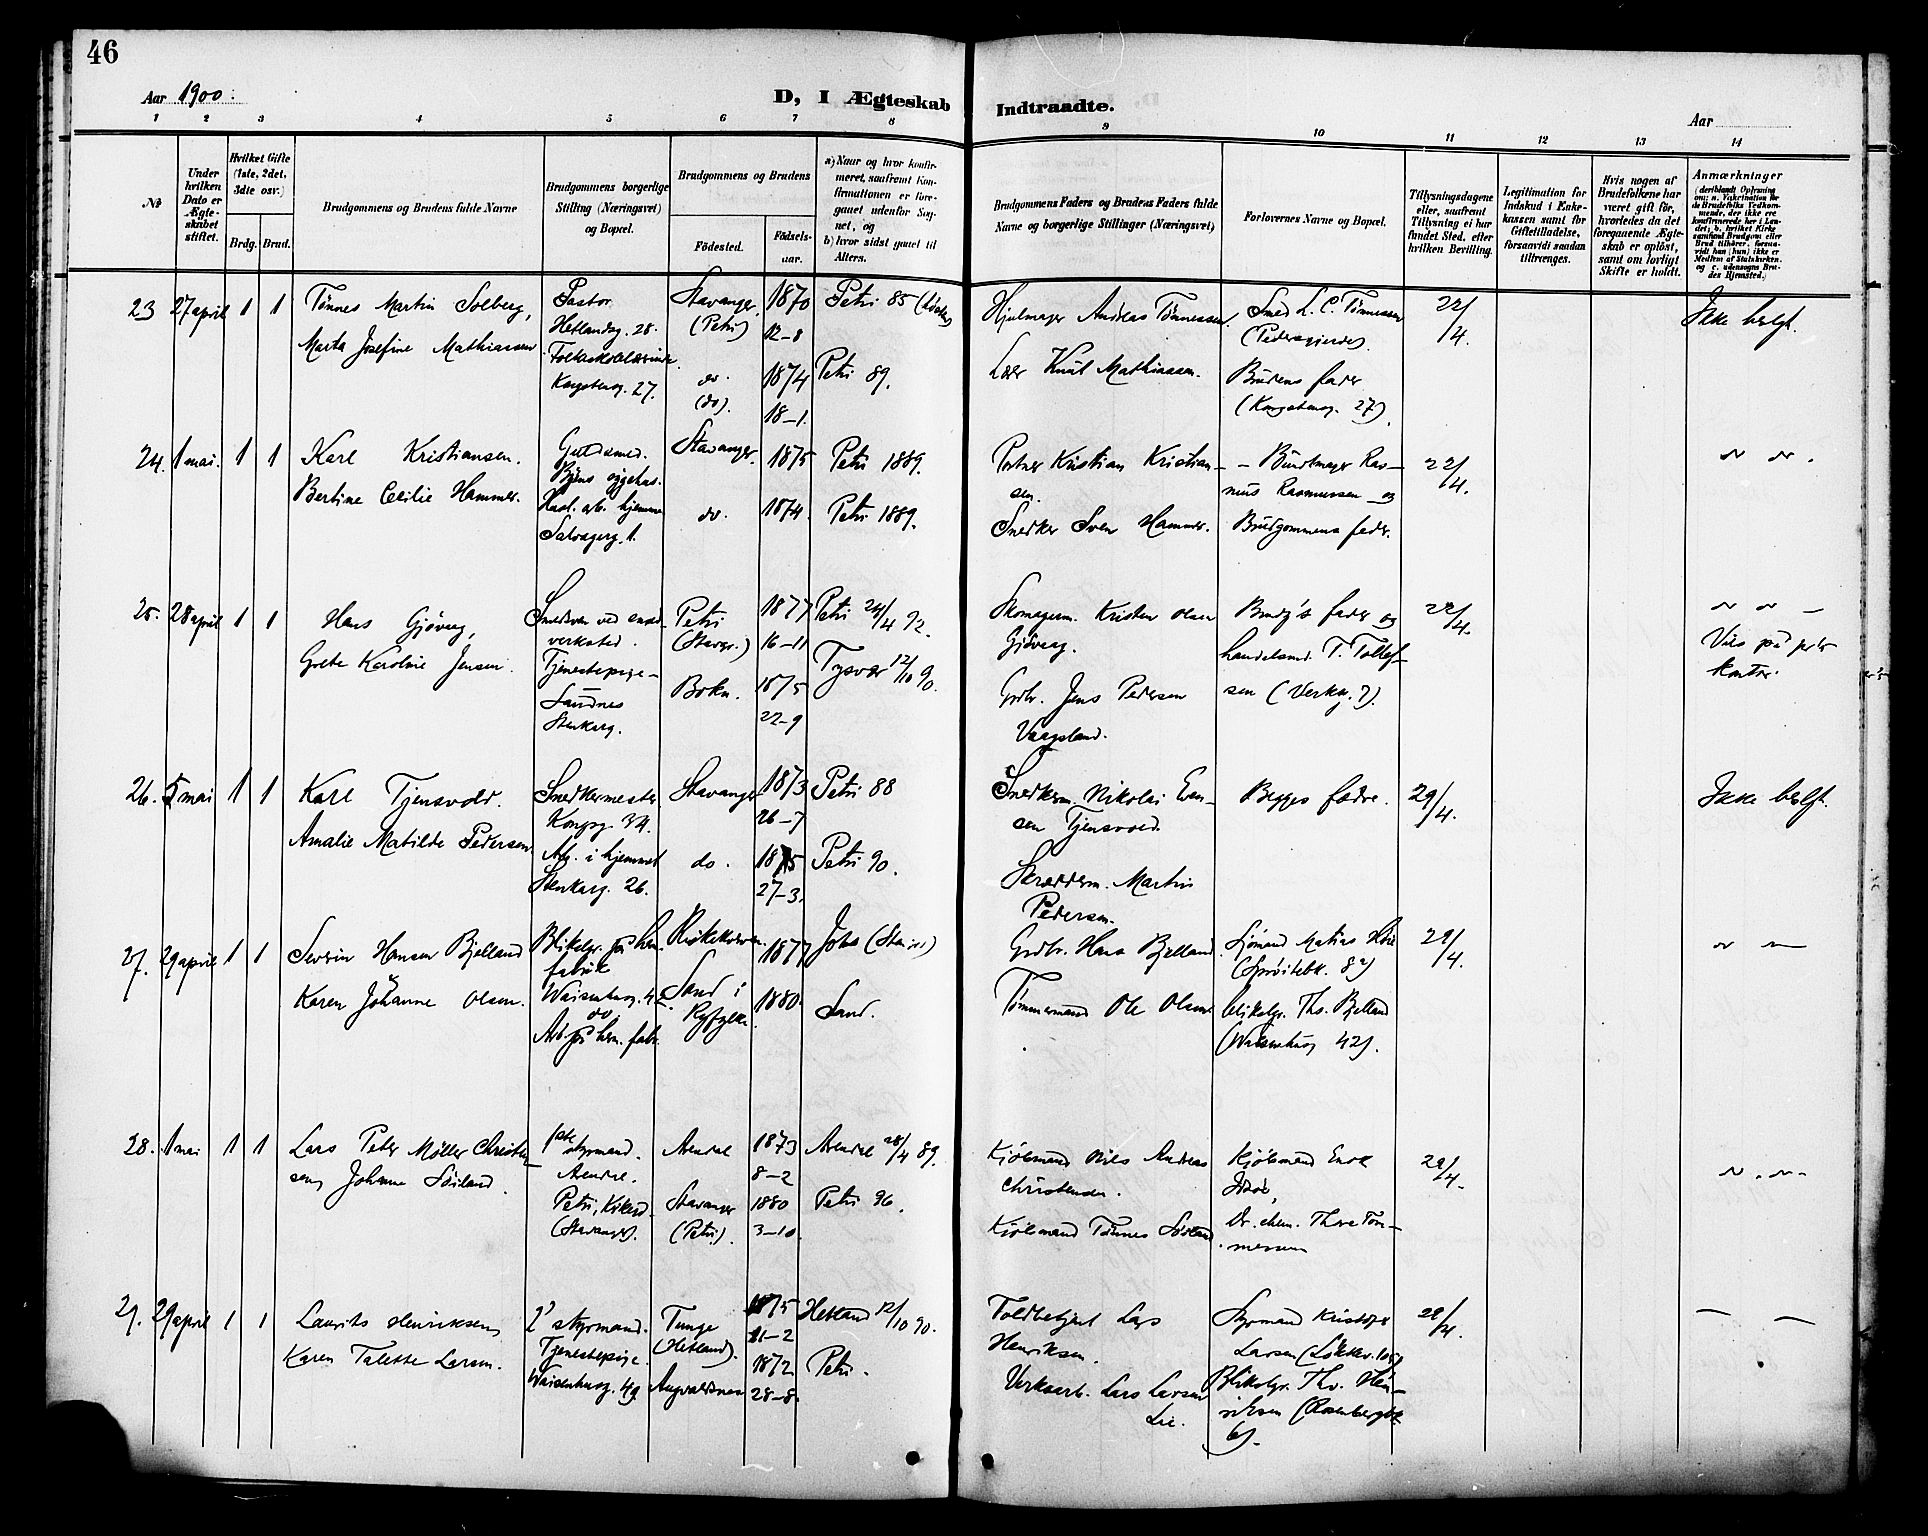 46
Aar 1900.
D, I Ægteskab Indtraadte.
Aar
1 2 3 4 5 6 7 8 9 10 11 12 13 14
No
Under hvilken Dato er Ægteskabet stiftet.
Hvilket Gifte (1ste, 2det, 3die osv.)
Brdg. Brud.
Brudgommens og Brudens fulde Navne
Brudgommens borgerlige Stilling (Næringsvei) og Bopæl.
Brudgommens og Brudens
Fødested.
Fødselsaar.
a) Naar og hvor konfirmeret, saafremt Konfirmationen er foregaaet udenfor Sognet, og
b) hvor sidst gaaet til Alters.
Brudgommens Faders og Brudens Faders fulde Navne og borgerlige Stillinger (Næringsvei)
Forlovernes Navne og Bopæl.
Tillysningsdagene eller, saafremt Tillysning ei har fundet Sted, efter hvilken Bevilling.
Legitimation for Indskud i Enkekassen samt for Giftetilladelse, forsaavidt saadan tiltrænges.
Hvis nogen af Brudefolkene har været gift før, hvorledes da det foregaaende Ægteskab er opløst, samt om lovligt Skifte er holdt.
Anmærkninger
23 27 april 1 1
Tønnes Martin Solberg,
Marta Josefine Mathiassen
Pastor.
Hetlandsg. 28.
Folkeskolelærerinde
Kongsteng. 27.
Stavanger
(Petri)
do.
(do).
1870
12-8
1874
18-1.
Petri 85
Petri 89.
Hjulmager Andreas Tønnessen.
Lærer Knut Mathiassen.
Smed L. C. Tønnessen
(Pedersgjerdet).
Brudens fader
(Kongsteng. 27).
22/4.
Ikke beslgt.
24. 1 mai. 1 1
Karl Kristiansen.
Bertine Cecilie Hammer.
Guldsmed.
Byens sygehus.
Husl. arb. hjemme
Salvagerg. 1.
Stavanger.
do.
1875
1874.
Petri 1889.
Petri 1889.
Portner Kristian Kristiansen.
Snedker Sven Hammer.
Bundtmager Rasmus Rasmussen og
Brudgommens fader.
22/4.
25. 28 april 1 1
Hans Gjøveg,
Grete Karoline Jensen.
verksted.
Tjenestepige
Sandnes
Stenkarg.
Petri
(Stavgr.)
Bokn.
1877
16-11
1875
22-9
Petri 24/4 92.
Tysvær 12/10 90.
Skomagerm. Kristen Olsen
Gjøveg.
Grdbr. Jens Pedersen
Vaagsland.
Brudg's fader og
handelsmd. T. Tollefsen (Verksg. 7).
22/4.
26. 5 mai 1 1
Karl Tjensvold.
Amalie Matilde Pedersen.
Snedkermester
Kongsg. 34.
Arb. i hjemmet
Stenkarg. 26.
Stavanger
do.
1873
26-7
1875
27-3.
Petri 88
Petri 90.
Snedkerm. Nikolai Evensen Tjensvold.
Skrædderm. Martin
Pedersen.
Begges fædre.
29/4.
Ikke beslgt.
27. 29 april 1 1
Severin Hansen Bjelland
Karen Johanne Olsen.
Blikslgr. på hm.
fabrik
Waisenhusg. 42
do
Arb. på hm. fabr.
Sand i
Ryfylke.
1877
1880.
Johs (Stav.)
Sand.
Grdbr. Hans Bjelland.
Tømmermand Ole Olsen
Sjømand Matias
blikslgr. Ths. Bjelland
(Waisenhusg 42).
29/4.
28. 1 mai 1 1
Lars Peter Møller Christensen, Johanne Søiland.
1ste styrmand.
Arendal.
Petri,
(Stavanger).
Arendal
Stavanger
(Petri).
1873
8-2
1880
3-10.
Arendal 28/4 89.
Petri 96.
Kjøbmand Nils Andreas
Christensen.
Kjøbmand Tønnes Søiland
Kjøbmand
Dr. chem. Thore Tønnessen
29/4.
29. 29 april 1 1
Laurits Henriksen,
Karen Talette Larsen.
2' styrmand.
Tjenestepige.
Waisenhusg. 49
Tunge
(Hetland).
Augvaldsnes
1875
11-2
1872
28-8.
Hetland 12/10 90.
Petri.
Toldbetjent Lars
Henriksen.
Verksarb. Lars Larsen
Lie.
Styrmand Kristofer
Larsen (Løkkev. 105)
Blikslgr. Thv. Henriksen (Rosenberggt.
6).
29/4.